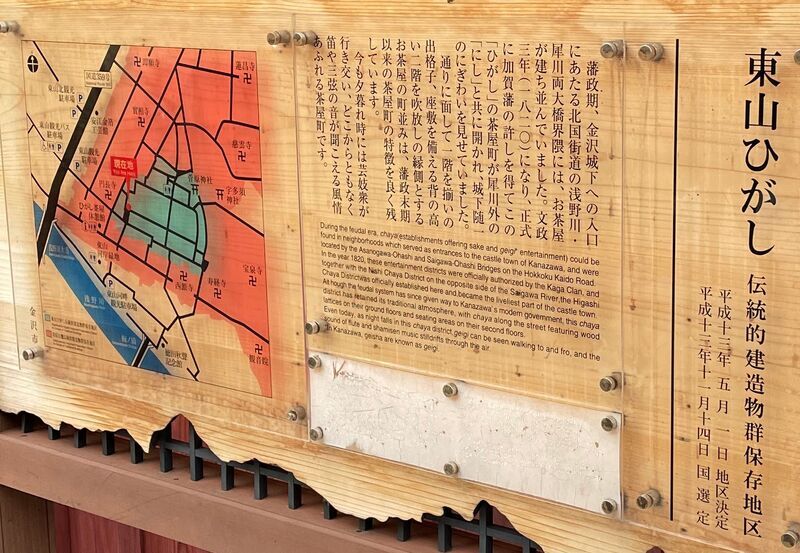 東山ひがし 伝統的建造物群保存地区
平成十三年 五月 一日 地区決定
平成十三年十一月十四日 国選定
藩政期、金沢城下への入口
にあたる北国街道の浅野川・
犀川両大橋界隈には、お茶屋
が建ち並んでいました。文政
三年（一八二〇）になり、正式
に加賀藩の許しを得てこの
「ひがし」の茶屋町が犀川外の
「にし」と共に開かれ、城下随一
のにぎわいを見せていました。
通りに面して一階を揃いの
出格子、座敷を備える背の高
い二階を吹放しの縁側とする
お茶屋の町並みは、藩政末期
以来の茶屋町の特徴を良く残
しています。
今も夕暮れ時には芸妓衆が
行き交い、どこからともなく
笛や三弦の音が聞こえる風情
あふれる茶屋町です。
During the feudal era, chaya(establishments offering sake and geigi* entertainment) could be
found in neighborhoods which served as entrances to the castle town of Kanazawa, and were
located by the Asanogawa-Ohashi and Saigawa-Ohashi Bridges on the Hokkoku Kaido Road.
In the year 1820, these entertainment districts were officially authorized by the Kaga Clan, and
together with the Nishi Chaya District on the opposite side of the Saigawa River,the Higashi
Chaya District was officially established here and became the liveliest part of the castle town.
Alt hough the feudal system has since given way to Kanazawa's modern government, this chaya
district has retained its traditional atmosphere, with chaya along the street featuring wood
lattices on their ground floors and seating areas on their second floors.
Even today, as night falls in this chaya district, geigi can be seen walking to and fro, and the
sound of flute and shamisen music still drifts through the air.
*In Kanazawa, geisha are known as geigi.
国道359号
蓮昌寺
慈雲寺
現在地
You Are Here
円長寺
菅原神社
宇多須
神社
東山北観光
駐車場
東山観光バス
駐車場
東山観光
駐車場
ひがし茶屋
休憩館
東山
河岸緑地
西源寺
寿経寺
宝泉寺
観音院
浅野川
梅ノ橋
徳田秋聲
記念館
金沢市